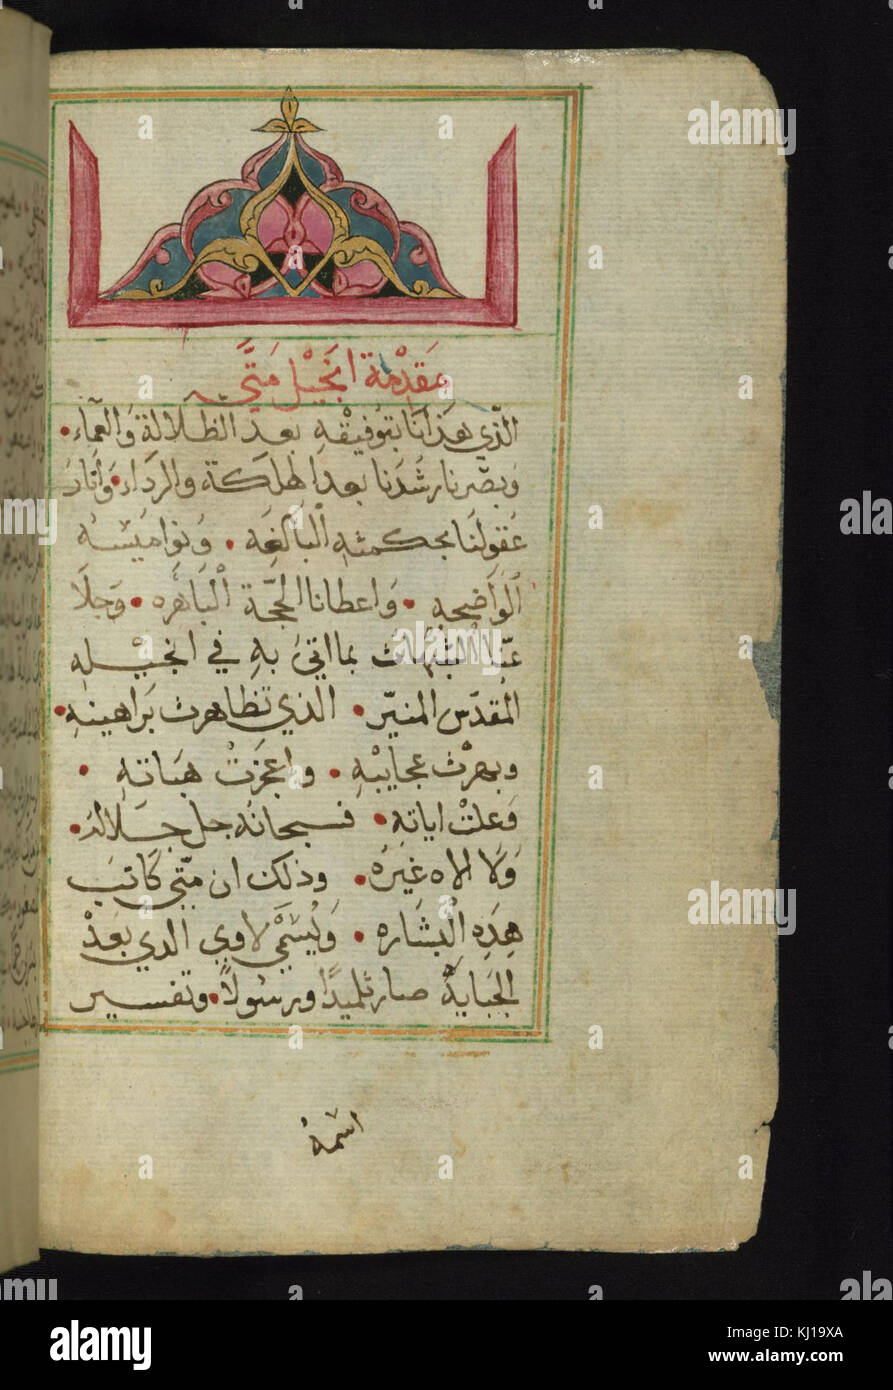 مقدمة انجيل متَّى
الذي هدانا بتوفيقه بعد الظلالة والعماء•
وبصّرنا رشدنا بعد الهلكة والرداء• وانار
عقولنا بحكمته البالغه • ونواميسه
الواضحه • واعطانا الحجّة الباهره • وجلا
عنّا الشبهات بما اتى به في انجيله
المقدّس المنيّر• الذي تظاهرت براهينه•
وبهرت عجايبه • واعجزت هباته •
وعلت اياته • فسبحانه جل جلاله•
ولا الاه غيره• وذلك ان متّى كاتب
هذه البشاره • ويُسَمَّى لاوي الدي بعد
الجباية صار تلميدًا ورسولاً• وتفسير
اسمه
alamy
Image ID: KJ19XA
www.alamy.com